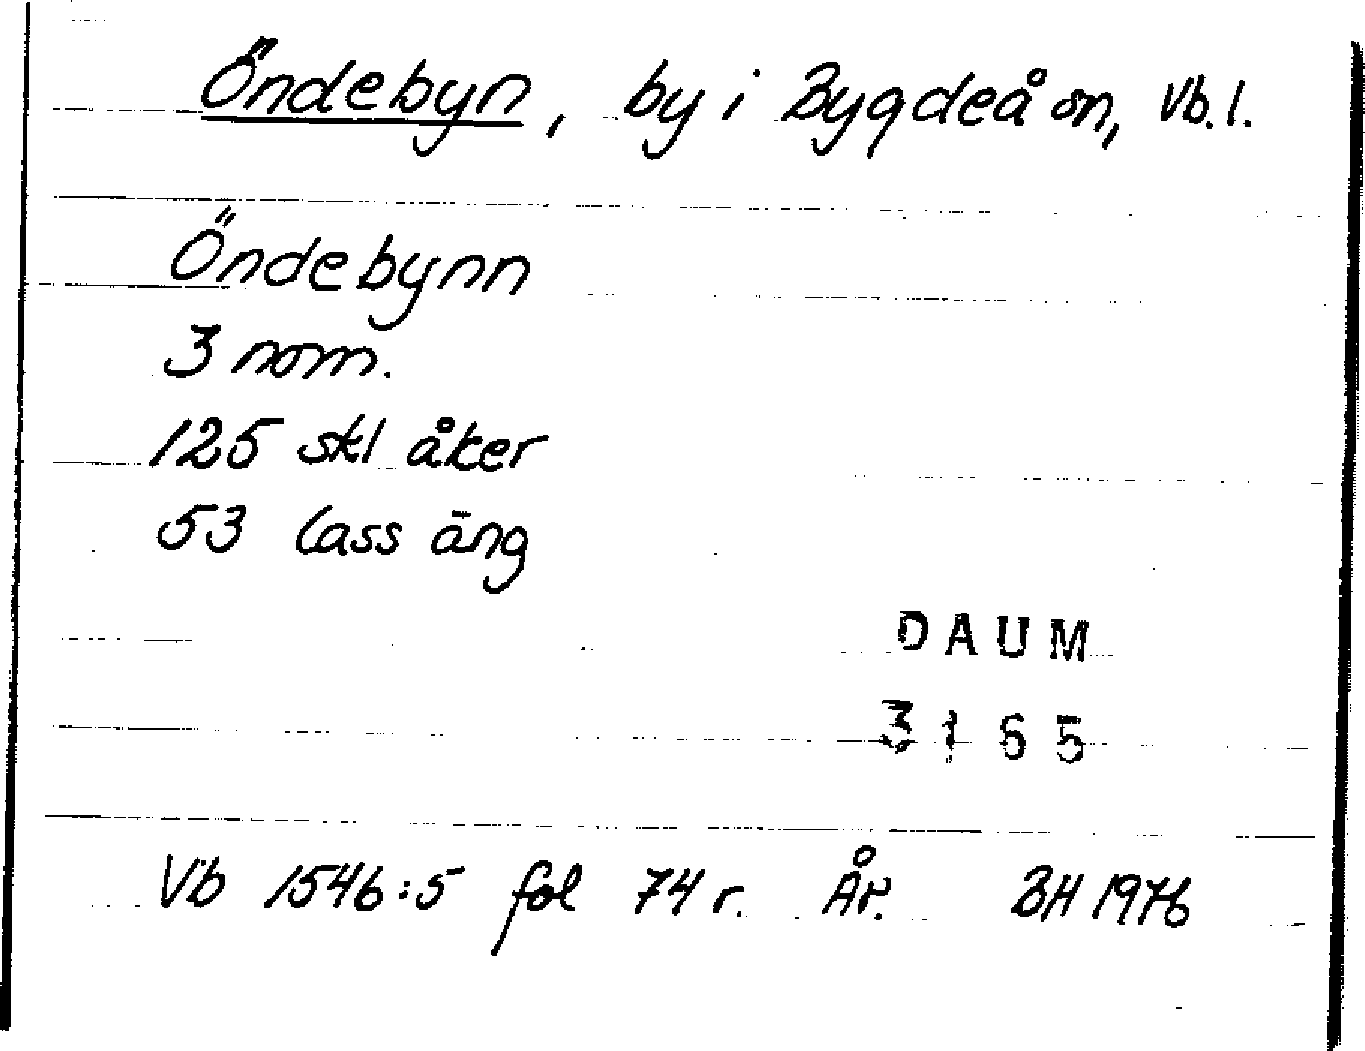 Öndebyn, by i Bygdeå sn, Vb. l.
Öndebynn
3 nom.
125 skl åker
53 lass äng
DAUM
3165
Vb 1546:5 fol 74 r. År. BH 1976